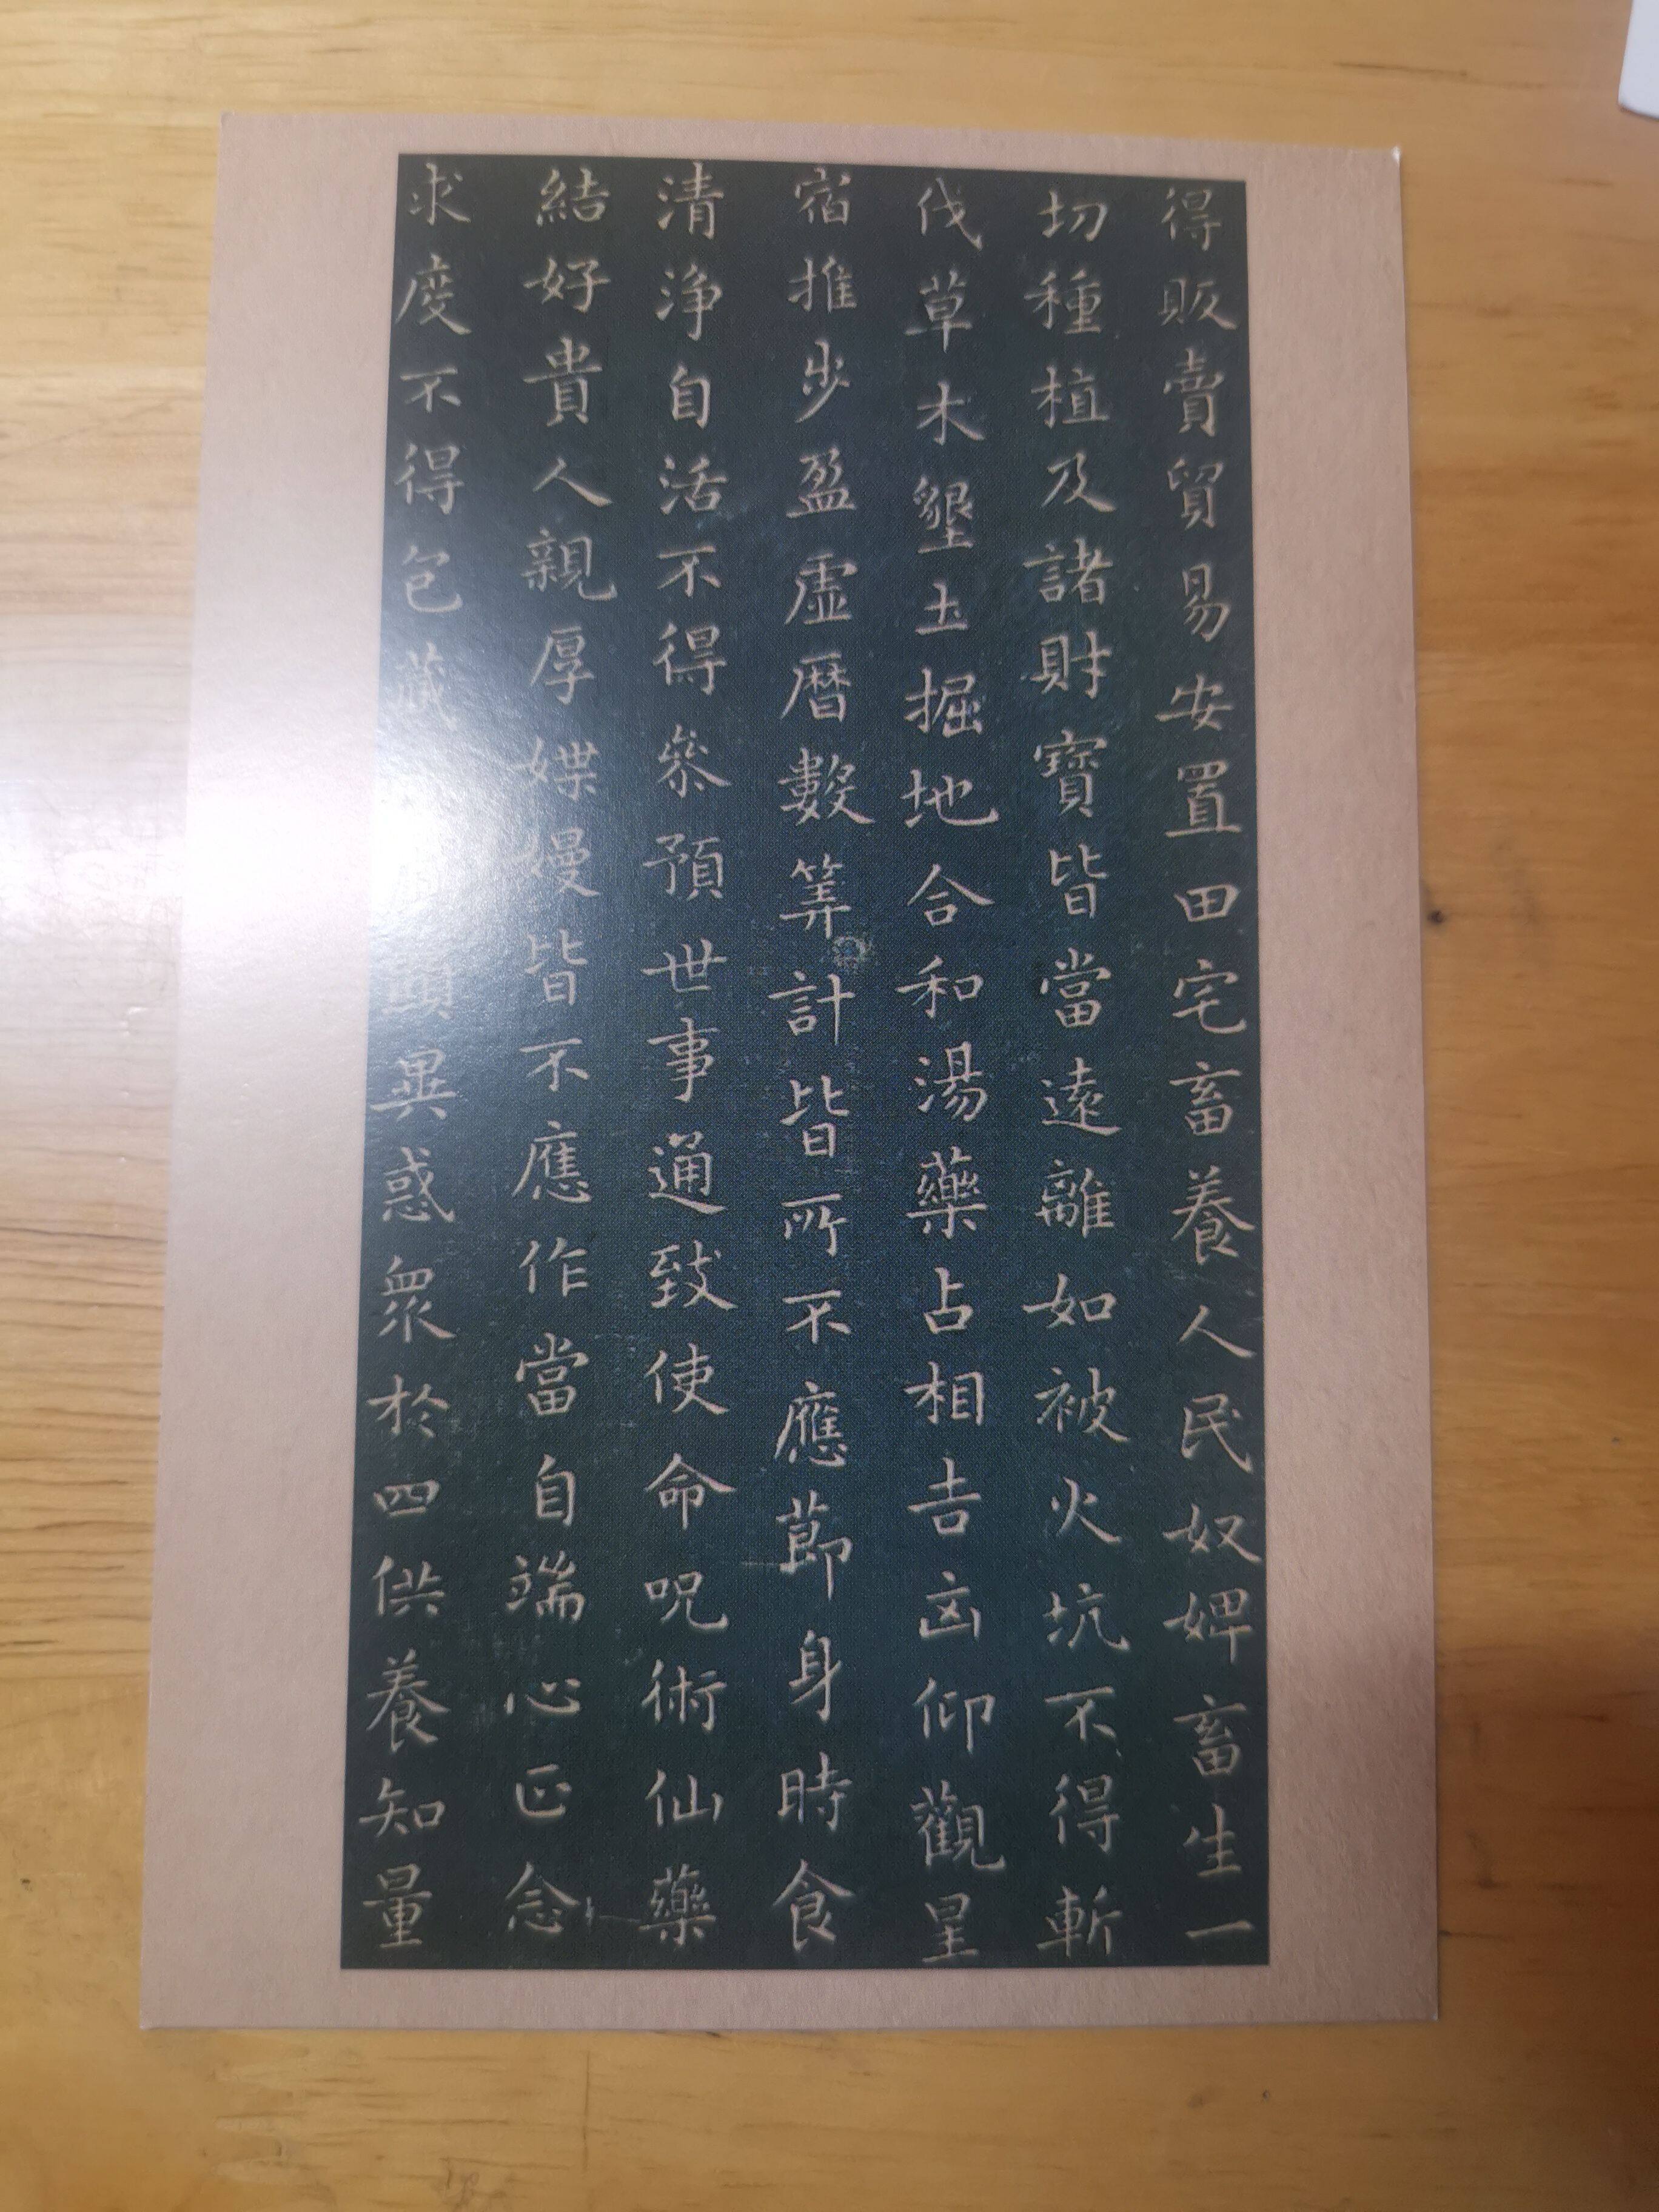 得販賣貿易安置田宅畜養人民奴婢畜生一
切種植及諸財寶皆當遠離如被火坑不得斬
伐草木墾土掘地合和湯藥占相吉凶仰觀星
宿推步盈虛曆數筭計皆所不應節身時食
清淨自活不得參預世事通致使命呪術仙藥
結好貴人親厚媟嫚皆不應作當自端心正念
求度不得包藏顯異惑眾於四供養知量